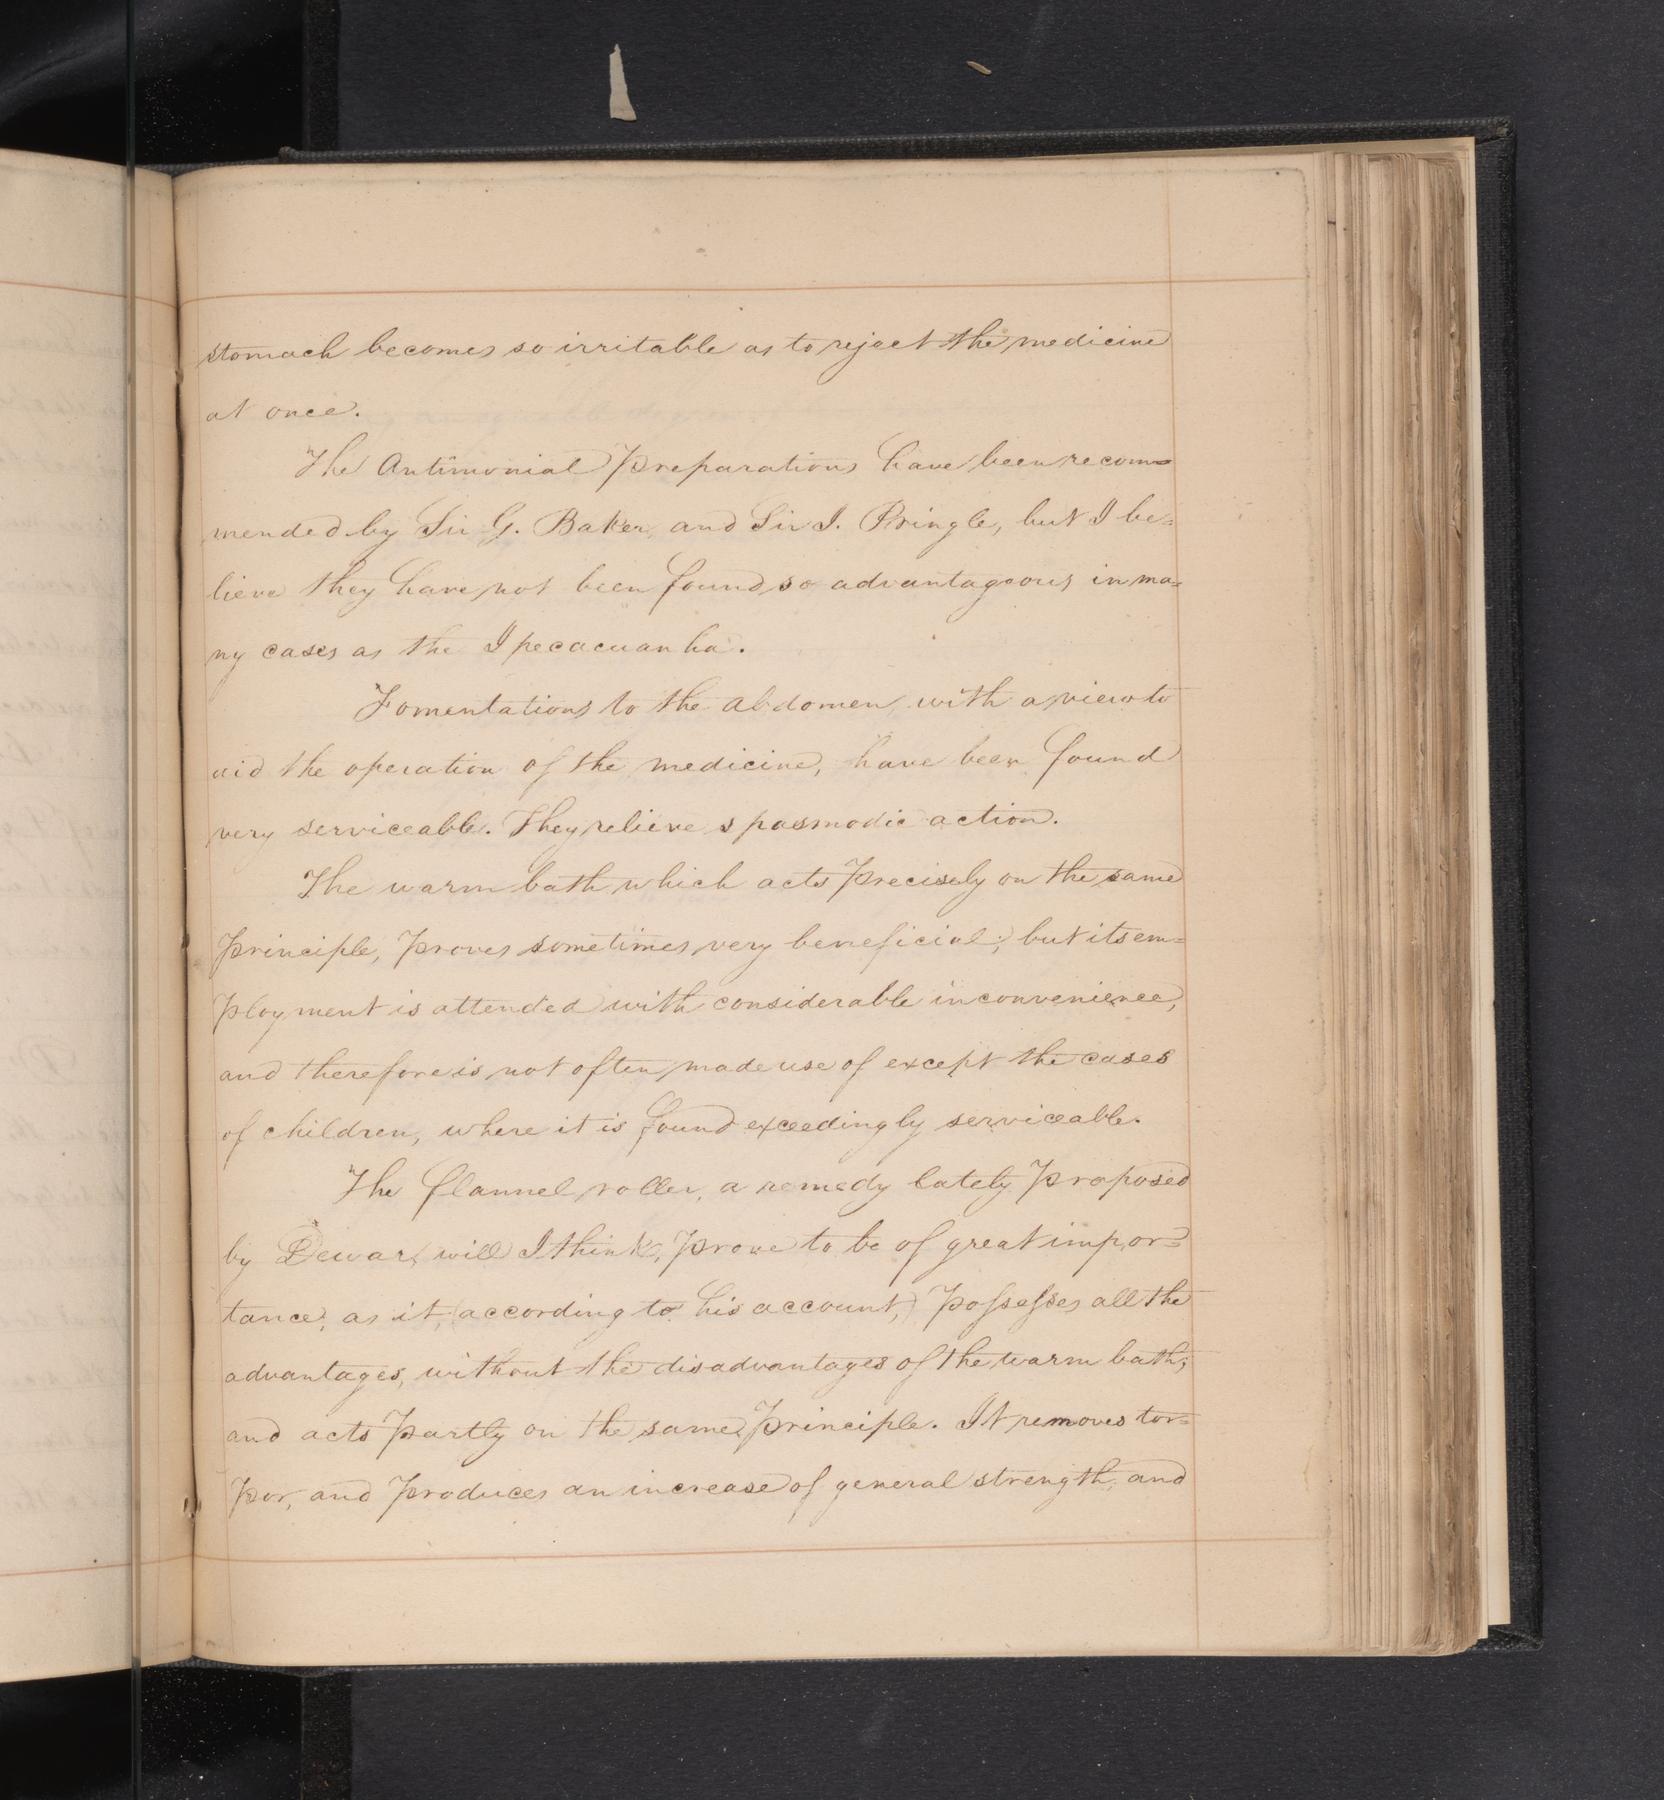 stomach becomes so irritable as to reject the medicine
at once.
The Antimonial Preparations have been recom=
mended by Sir G. Baker, and Sir I. Pringle, but I be=
lieve they have not been found so advantageous in ma=
ny cases as the Ipecacuanha.
Fomentations to the abdomen, with a view to
aid the operation of the medicine, have been found
very serviceable. They relieve spasmodic action.
The warm bath which acts Precisely on the same
Principle, Proves sometimes very beneficial; but its em=
Ployment is attended with considerable inconvenience,
and therefore is not often made use of except the cases
of children, where it is found exceedingly serviceable.
The flannel roller, a remedy lately Proposed
by Dewar, will I think, Prove to be of great impor=
tance, as it, (according to his account,) Possesses all the
advantages, without the disadvantages of the warm bath;
and acts Partly on the same Principle. It removes tor=
Por, and Produces an increase of general strength, and